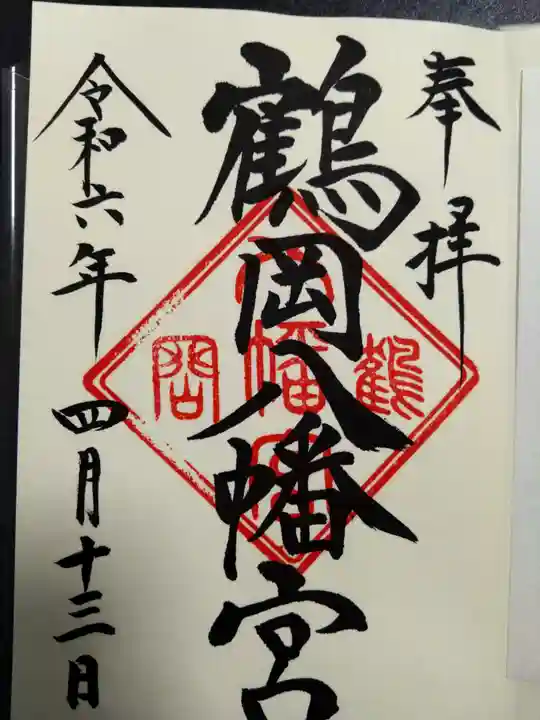 奉拝
鶴岡八幡宮
鶴
八幡宮
岡
令和六年四月十三日